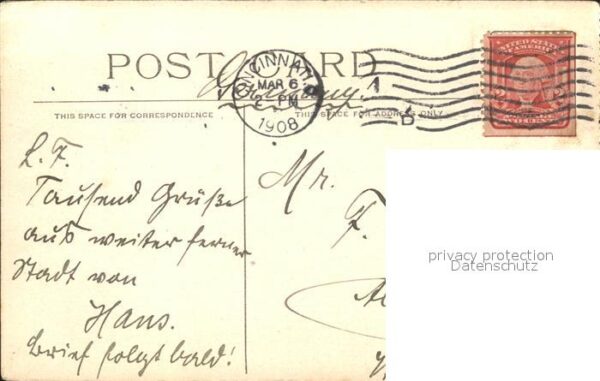 POST CARD
Germany
CINCINNATI, O.
MAR 6
PM
1908
1
B
UNITED STATES
OF AMERICA
2 2
THIS SPACE FOR CORRESPONDENCE
THIS SPACE FOR ADDRESS ONLY
L. F.
Tausend Grüße
aus weiter ferner
Stadt von
Hans.
Brief folgt bald!
Mr.
F.
privacy protection
Datenschutz